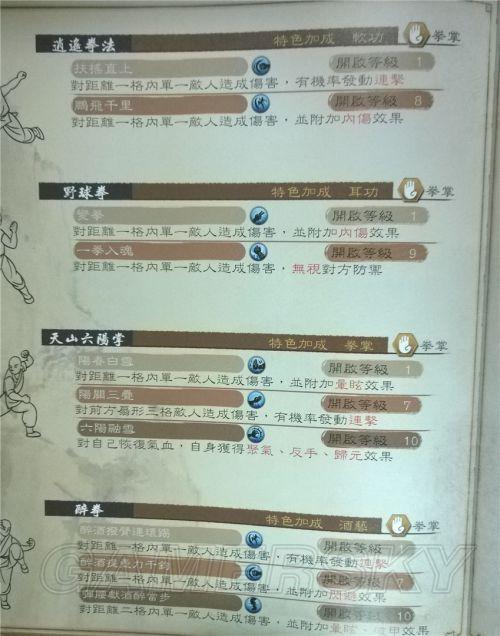 逍遙拳法 特色加成 軟功 拳掌
扶搖直上 開啟等級 1
對距離一格內單一敵人造成傷害，有機率發動連擊
鵬飛千里 開啟等級 8
對距離一格內單一敵人造成傷害，並附加內傷效果
野球拳 特色加成 耳功 拳掌
變拳 開啟等級 1
對距離一格內單一敵人造成傷害，並附加內傷效果
一拳入魂 開啟等級 9
對距離一格內單一敵人造成傷害，無視對方防禦
天山六陽掌 特色加成 拳掌 拳掌
陽春白雪 開啟等級 1
對距離一格內單一敵人造成傷害，並附加暈眩效果
陽關三疊 開啟等級 7
對前方扇形三格敵人造成傷害，有機率發動連擊
六陽融雪 開啟等級 10
對自己恢復氣血，自身獲得聚氣、反手、歸元效果
醉拳 特色加成 酒藝 拳掌
醉酒拐臂連環踢 開啟等級 1
對距離一格內單一敵人造成傷害，有機率發動連擊
醉酒 力千鈞 開啟等級 7
對距離一格內單一敵人造成傷害，並附加閃避效果
彈腰獻酒醉盪步 開啟等級 10
對距離二格內單一敵人造成傷害，並附加暈眩、 甲效果
GAMERSKY